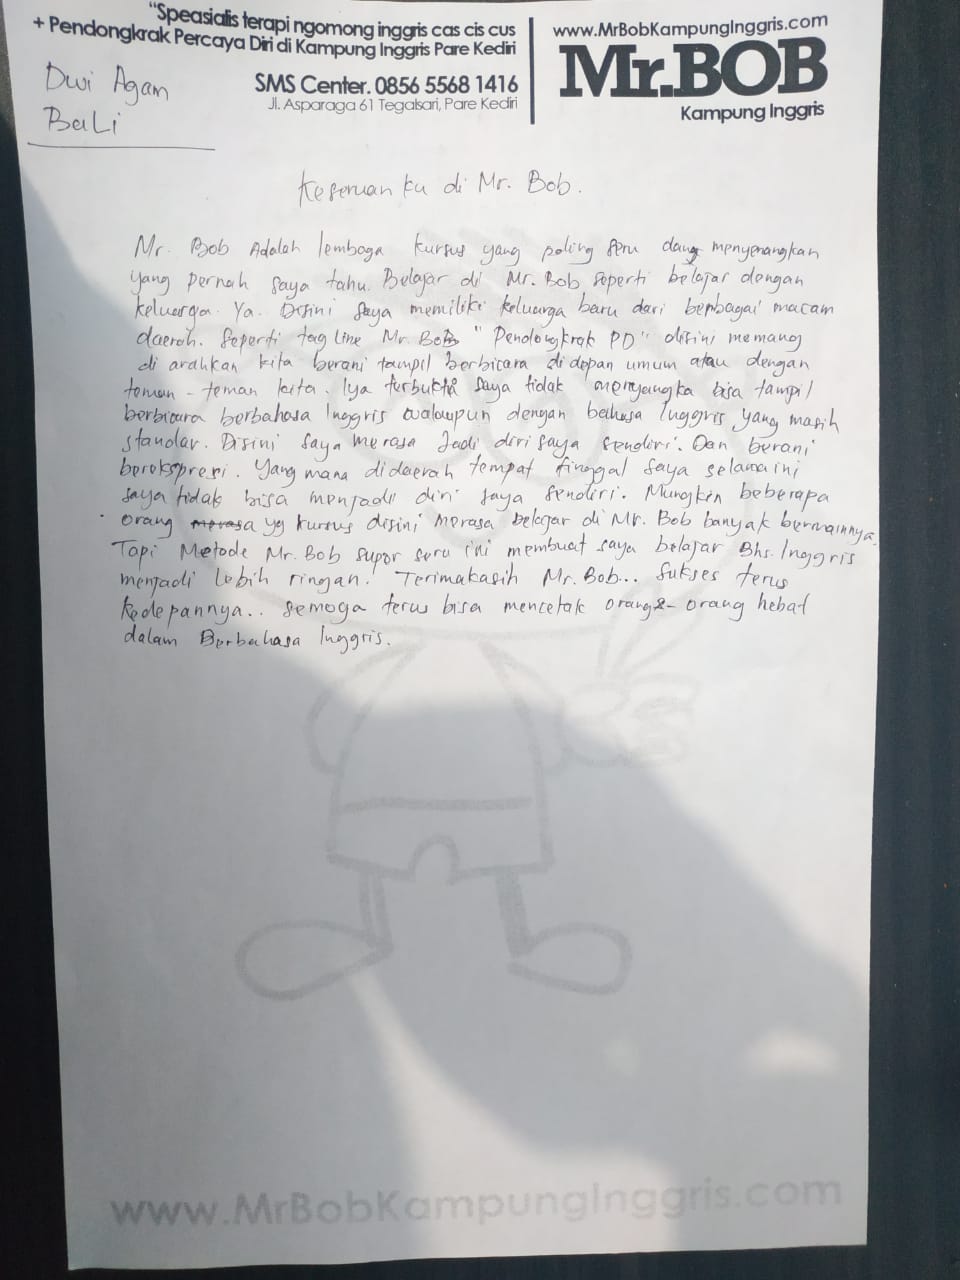 "Speasialis terapi ngomong inggris cas cis cus
+ Pendongkrak Percaya Diri di Kampung Inggris Pare Kediri
SMS Center. 0856 5568 1416
Jl. Asparaga 61 Tegalsari, Pare Kediri
www.MrBobKampungInggris.com
Mr.BOB
Kampung Inggris
Dwi Agam
Bali
Keseruanku di Mr. Bob.
Mr. Bob Adalah lembaga kursus yang paling seru dang menyenangkan
yang pernah saya tahu. Belajar di Mr. Bob seperti belajar dengan
keluarga. Ya. Disini saya memiliki keluarga baru dari berbagai macam
daerah. Seperti tag line Mr. Bob "Pendongkrak PD" disini memang
di arahkan kita berani tampil berbicara didepan umum atau dengan
teman - teman kita. Iya terbukti saya tidak menyangka bisa tampil
berbicara berbahasa Inggris walaupun dengan bahasa Inggris yang masih
standar. Disini saya merasa Jadi diri saya sendiri. Dan berani
berekspresi. Yang mana didaerah tempat tinggal saya selama ini
saya tidak bisa menjadi diri saya sendiri. Mungkin beberapa
orang merasa yg kursus disini merasa belajar di Mr. Bob banyak bermainnya.
Tapi Metode Mr. Bob super seru ini membuat saya belajar Bhs. Inggris
menjadi lebih ringan. Terimakasih Mr. Bob... Sukses terus
kedepannya.. semoga terus bisa mencetak orang - orang hebat
dalam Berbahasa Inggris.
www.MrBobKampungInggris.com